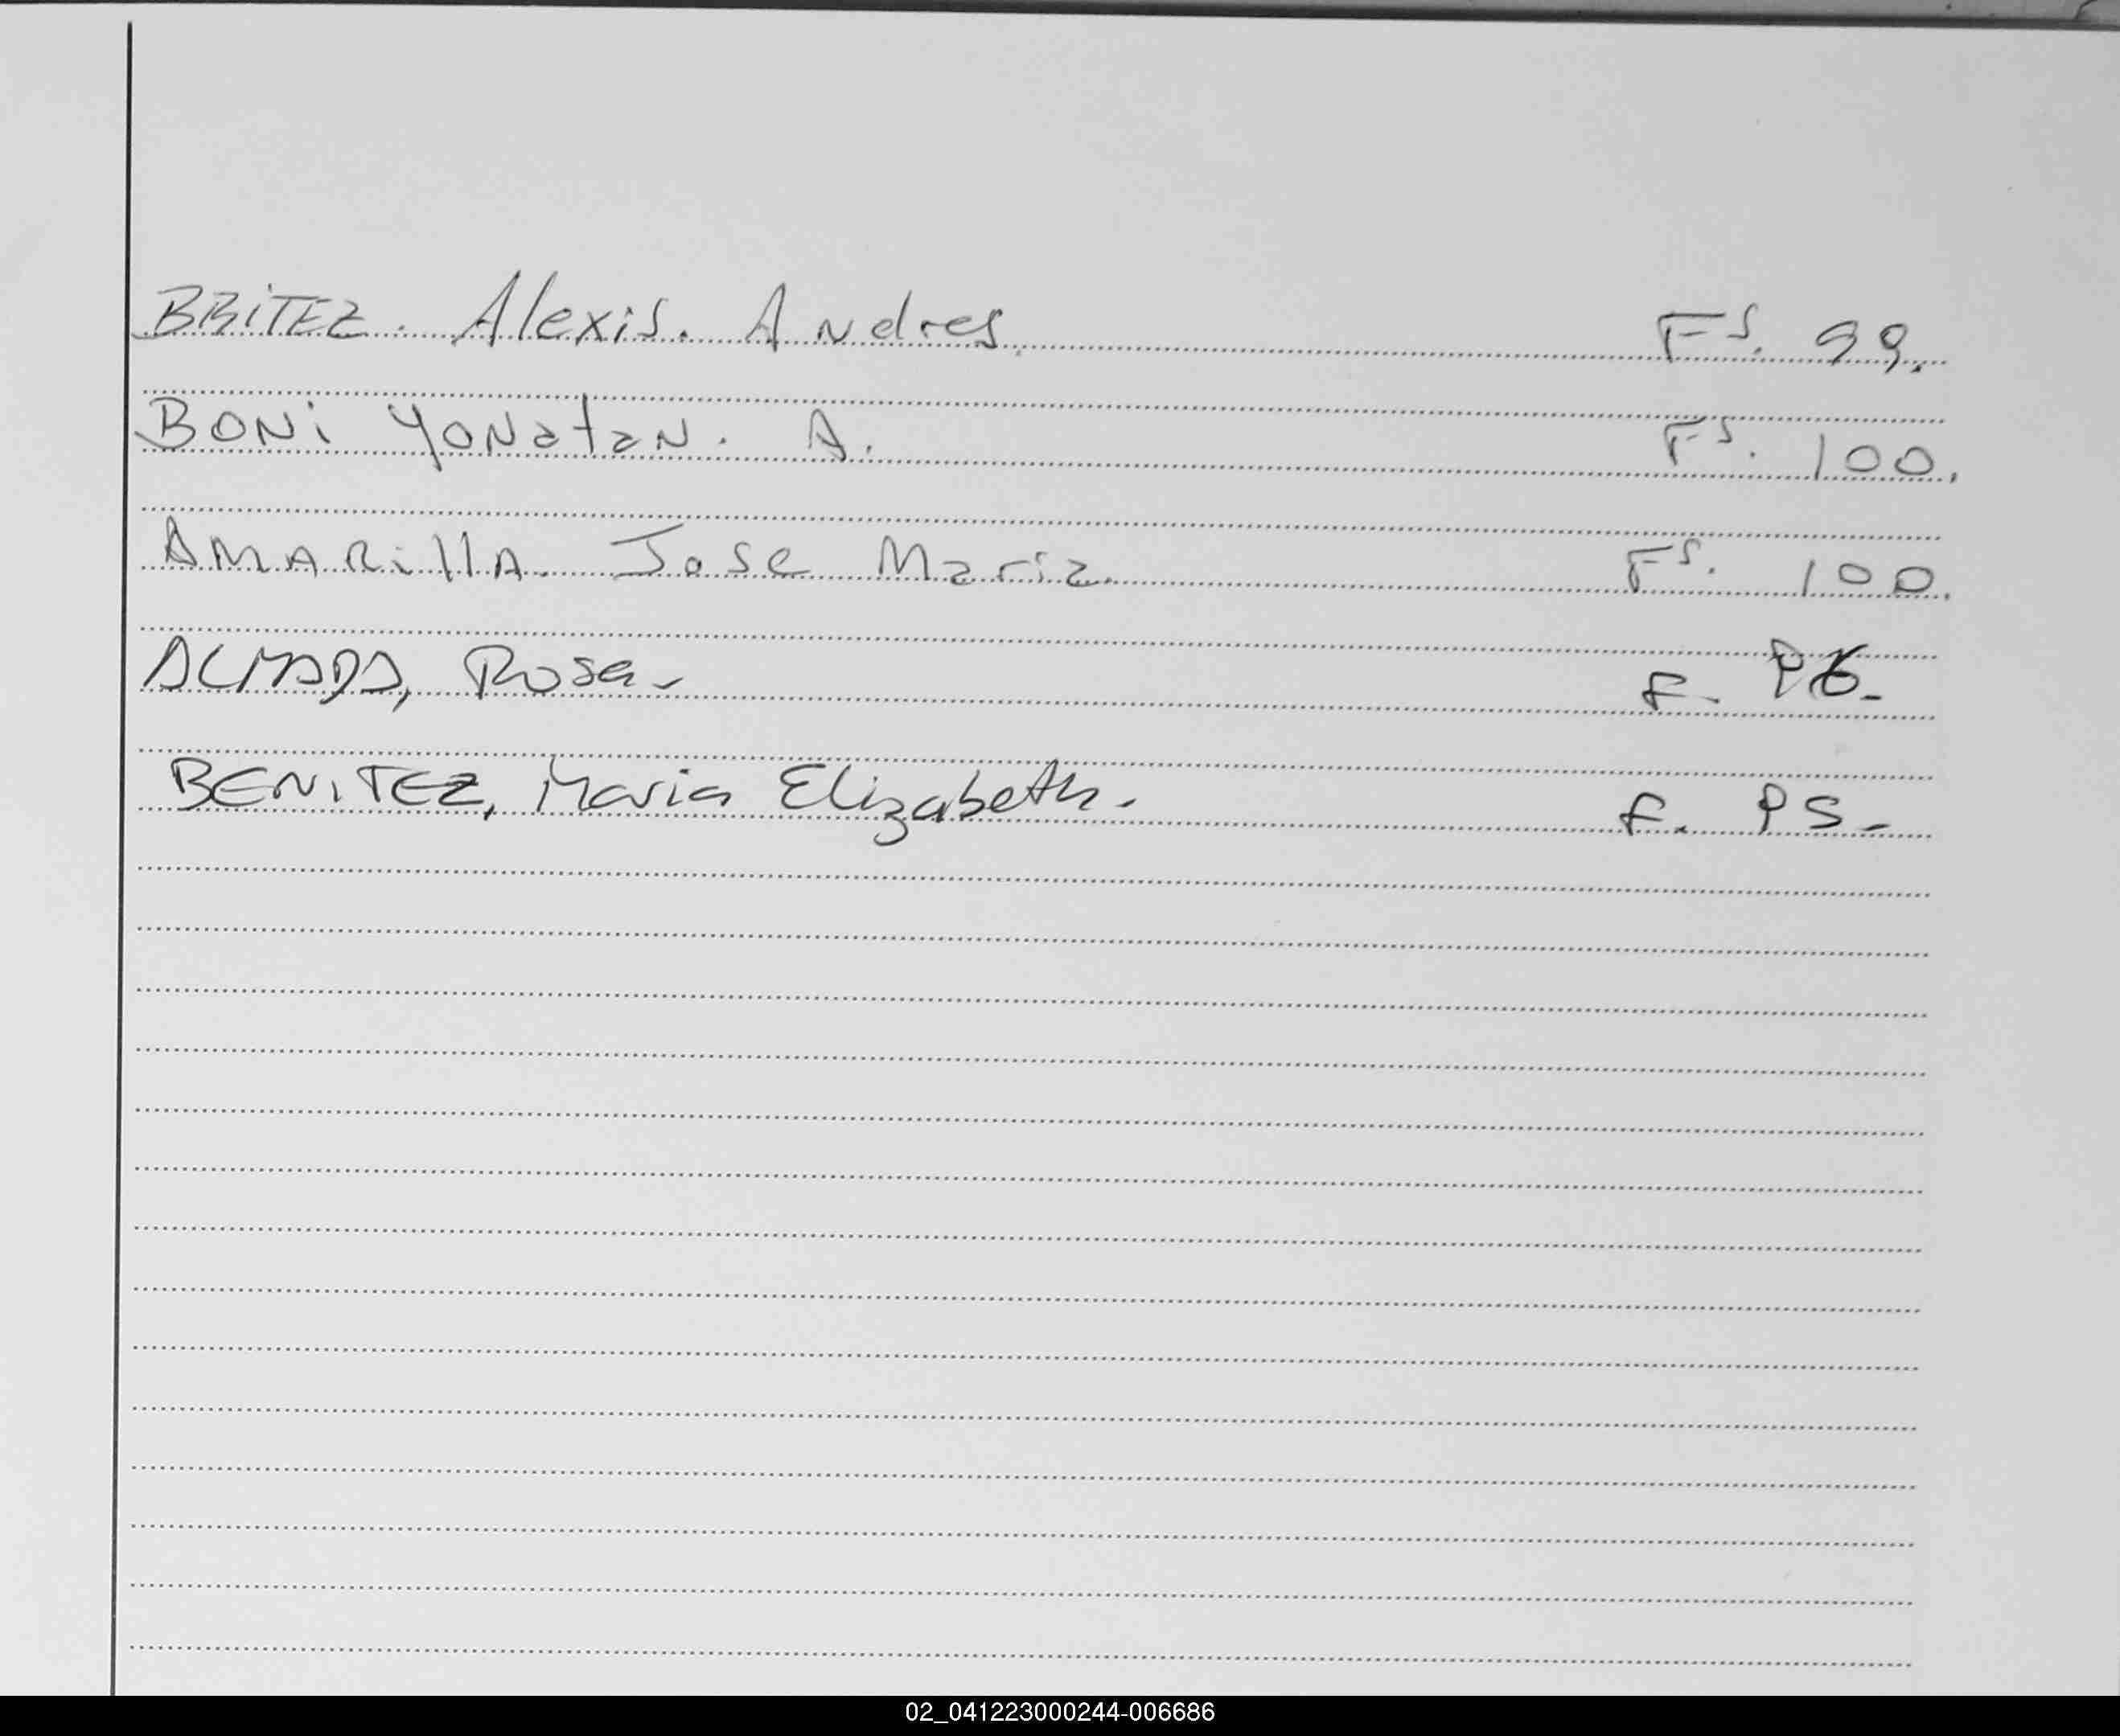 BRITEZ. Alexis. Andres. Fs. 99.
BONi YONatan. A. Fs. 100.
AMARillA. Jose Maria. Fs. 100.
ALMADA, Rosa- F-
BENITEZ, Maria Elizabeth. f. 95-
02_041223000244-006686